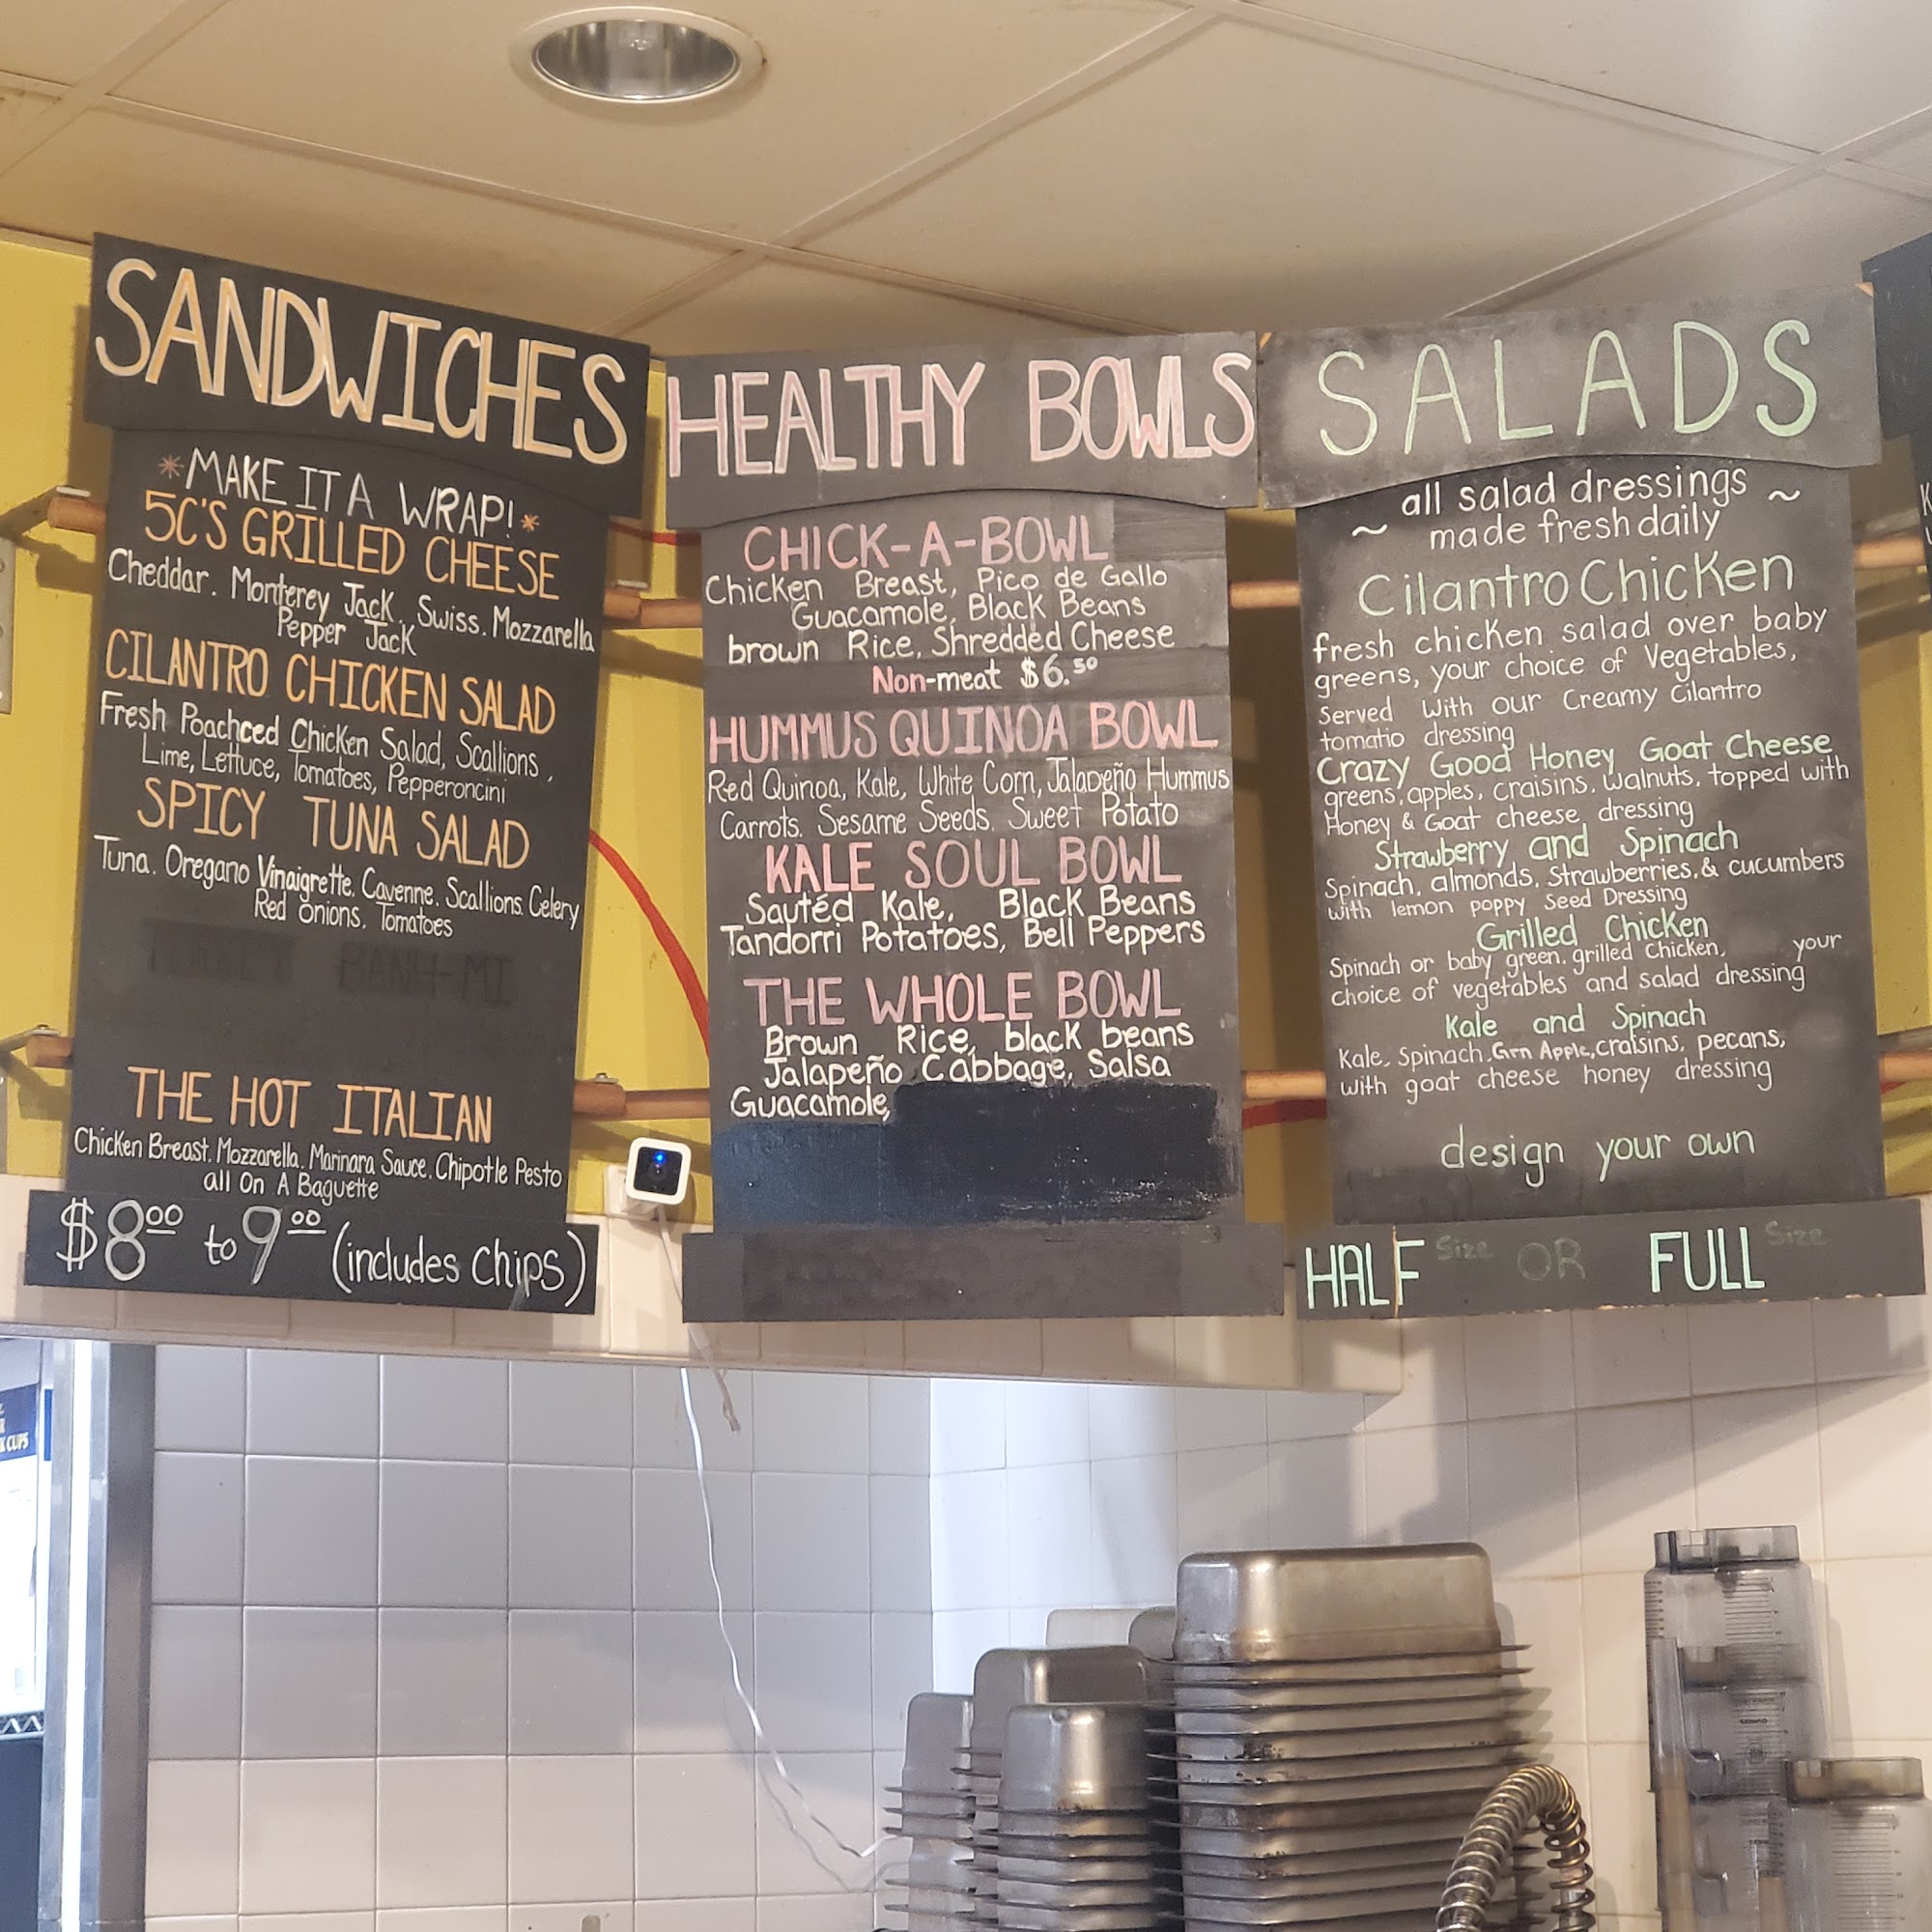 SANDWICHES
*MAKE IT A WRAP!*
5C'S GRILLED CHEESE
Cheddar. Monterey Jack. Swiss. Mozzarella
Pepper Jack
CILANTRO CHICKEN SALAD
Fresh Poachced Chicken Salad, Scallions,
Lime, Lettuce, Tomatoes, Pepperoncini
SPICY TUNA SALAD
Tuna. Oregano Vinaigrette. Cayenne. Scallions. Celery
Red onions. Tomatoes
BANH-MI
THE HOT ITALIAN
Chicken Breast. Mozzarella. Marinara Sauce. Chipotle Pesto
all On A Baguette
$8.00 to 9.00 (includes chips)
HEALTHY BOWLS
CHICK-A-BOWL
Chicken Breast, Pico de Gallo
Guacamole, Black Beans
brown Rice, Shredded Cheese
Non-meat $6.50
HUMMUS QUINOA BOWL
Red Quinoa, Kale, White Corn, Jalapeño Hummus
Carrots. Sesame Seeds. Sweet Potato
KALE SOUL BOWL
Sautéd Kale, Black Beans
Tandorri Potatoes, Bell Peppers
THE WHOLE BOWL
Brown Rice, black beans
Jalapeño Cabbage, Salsa
Guacamole,
SALADS
~ all salad dressings ~
made fresh daily
Cilantro Chicken
fresh chicken salad over baby
greens, your choice of Vegetables,
Served With our Creamy Cilantro
tomatio dressing
Crazy Good Honey Goat Cheese
greens, apples, craisins, walnuts, topped with
Honey & Goat cheese dressing
Strawberry and Spinach
Spinach, almonds, Strawberries, & cucumbers
with lemon poppy Seed Dressing
Grilled Chicken
Spinach or baby green, grilled chicken, your
choice of vegetables and salad dressing
Kale and Spinach
Kale, Spinach, Grn Apple, craisins, pecans,
with goat cheese honey dressing
design your own
HALF Size OR FULL Size
CUPS